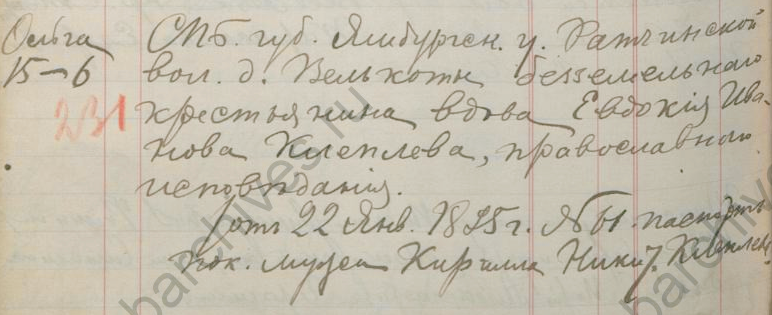 Ольга СПб. губ. Ямбургск. у. Ратчинской
15-6 вол. д. Велькоты безземельнаго
231 крестьянина вдова Евдокія Ива-
нова Клеплева, православнаго
исповѣданія.
отъ 22 Янв. 1895 г. № 61. паспортъ
пок. мужа Кирилла Никит. Клеплева
barchives.ru
barchives